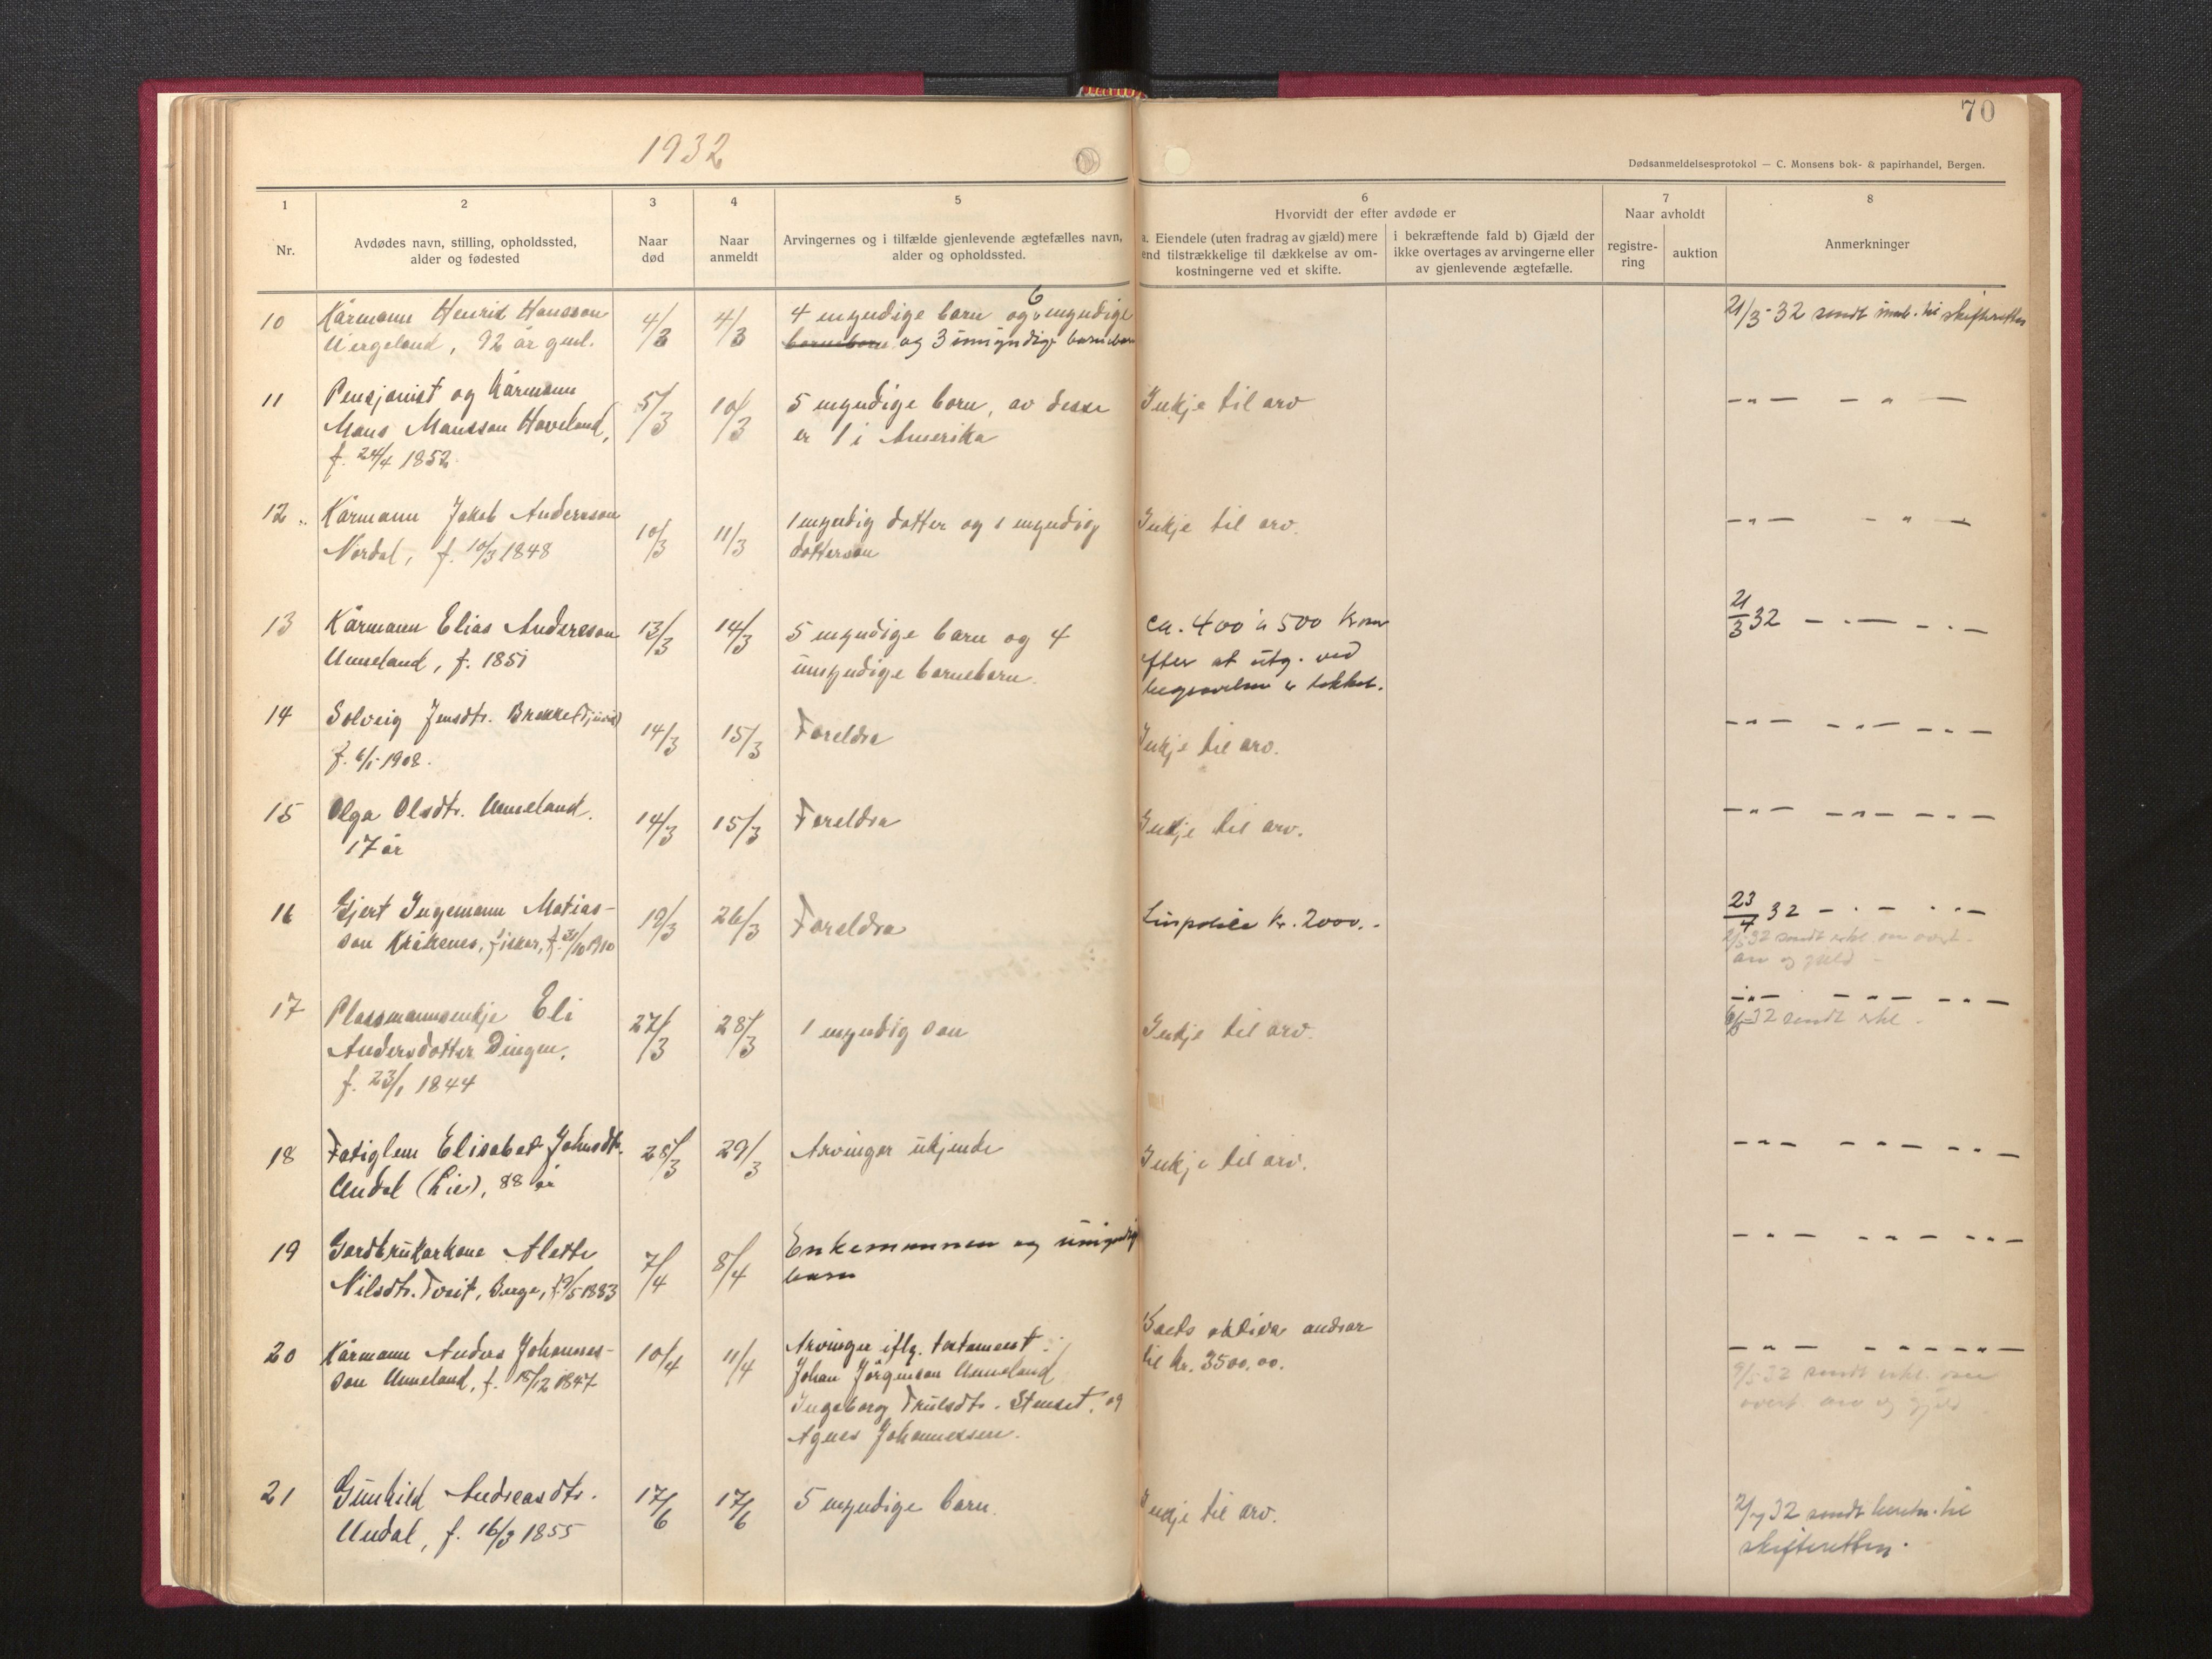 70
1932
Dødsanmeldelsesprotokol — C. Monsens bok- & papirhandel, Bergen.
1
2
3
4
5
6
7
8
Nr.
Avdødes navn, stilling, opholdssted,
alder og fødested
Naar
død
Naar
anmeldt
Arvingernes og i tilfælde gjenlevende ægtefælles navn,
alder og opholdssted.
Hvorvidt der efter avdøde er
a. Eiendele (uten fradrag av gjæld) mere
end tilstrækkelige til dækkelse av om-
kostningerne ved et skifte.
i bekræftende fald b) Gjæld der
ikke overtages av arvingerne eller
av gjenlevende ægtefælle.
Naar avholdt
registre-
ring
auktion
Anmerkninger
10
Kårmann Henrik Hansson
Vergeland, 92 år gml.
4/3
4/3
6
4 myndige barn og myndige
barneborn og 3 umyndige barnebarn
21/3-32 sendt til skifteretten
11
Pensjonist og kårmann
Mons Monsson Hoveland,
f. 24/4 1852
5/3
10/3
5 myndige born, av desse
er 1 i Amerika
Inkje til arv
— " — — " —
12
Kårmann Jakob Andersson
Nordal, f. 10/3 1848
10/3
11/3
1 myndig dotter og 1 myndig
dotterson
Inkje til arv.
— " — — " —
13
Kårmann Elias Andersson
Unneland, f. 1851
13/3
14/3
5 myndige barn og 4
umyndige barnebarn.
ca. 400 à 500 kroner
efter at utg. ved
begravelsen er dekket.
21/3 32 — . — — . —
14
Solveig Jensdtr. Brekke
f. 6/1-1908.
14/3
15/3
Foreldra
Inkje til arv.
— " — — " — — " —
15
Olga Olsdtr. Unneland.
17 år
14/3
15/3
Foreldra
Inkje til arv.
— " — — " — — " —
16
Gjert Ingemann Matias-
son Kråkenes, fisker, f. 31/10 1910
19/3
26/3
Foreldra
Livpolise kr. 2000.-
23/4 32 — . — . . —
2/5 32 sendt erkl. om overt.
arv og gjeld —
17
Plassmannsenkje Eli
Andersdotter Dingen,
f. 23/1 1844
27/3
28/3
1 myndig son
Inkje til arv.
— " — — " — — " —
32 sendt erkl.
18
Fatiglem Elisabet Johnsdtr.
Undal (Lie), 88 år
28/3
29/3
Arvinger ukjende
Inkje til arv.
— " — — " — — " —
19
Gardbrukarkone Alette
Nilsdtr. Tveit, Berge, f. 19/5 1883
7/4
8/4
Enkemannen og umyndig
barn
— " — — " — — " —
20
Kårmann Anders Johannes-
son Unneland, f. 15/12 1847
10/4
11/4
Arvinger iflg. testament:
Johan Jörgenson Unneland
Ingeborg Trulsdtr. Stenset, og
Agnes Johannessen.
Boets aktiva andrar
til kr. 3500.00.
— " — — " — " —
9/5 32 sendt erkl. om
overt. arv og gjeld
21
Gunhild Andreasdtr.
Undal, f. 16/3 1855
17/6
17/6
5 myndige barn.
Inkje til arv.
2/7 32 sendt beretn. til
skifteretten.